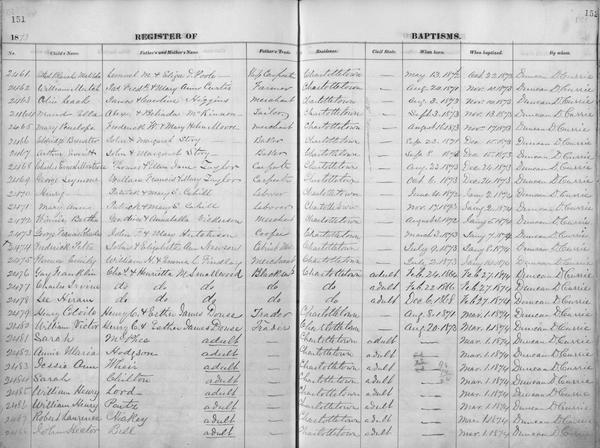 151
152
1873 REGISTER OF BAPTISMS.
No. Child's Name. Father's and Mother's Name. Father's Trade. Residence. Civil State. When born. When baptized. By whom.
2461 Samuel M. & Eliza J. Poole Ship Carpenter Charlottetown — May 13. 1872 Oct 22. 1873 Duncan D. Currie
2462 William Farmer Charlottetown — Aug 20. 1871 Nov 1873 Duncan D. Currie
2463 James & Caroline Higgins Merchant Charlottetown — Aug 2. 1873 Nov 1873 Duncan D. Currie
2464 Maud Ella McKinnon Tailor Charlottetown — Sept 3. 1873 Nov 1873 Duncan D. Currie
2465 Mary Penelope Frederick W. & Mary Helen Moore merchant Charlottetown — 1873 Nov 17. 1873 Duncan D. Currie
2466 John & Margaret Baker Charlottetown — Sep 23. 1871 Dec 15. 1873 Duncan D. Currie
2467 John & Margaret Baker Charlottetown — Sept 8. 1873 Dec 15. 1873 Duncan D. Currie
2468 Thomas & Ellen Jane Taylor Carpenter Charlottetown — Aug 22. 1873 Dec 24. 1873 Duncan D. Currie
2469 George Seymour William Francis & Mary Taylor Carpenter Charlottetown — Oct 6. 1873 Dec 24. 1873 Duncan D. Currie
2470 Henry Patrick & Mary E. Cahill Labourer Charlottetown — June 16. 1872 Jany 2. 1874 Duncan D. Currie
2471 Mary Anne Patrick & Mary E. Cahill Labourer Charlottetown — Nov 17. 1873 Jany 2. 1874 Duncan D. Currie
2472 Bertha Annabella Merchant Charlottetown — August 1872 Jany 1874 Duncan D. Currie
2473 John T. & Mary Hutchison Cooper Charlottetown — March 3. 1873 Jany 7. 1874 Duncan D. Currie
2474 Frederick Peter John & Elizabeth Ann Newson Charlottetown — July 9. 1873 Jany 8. 1874 Duncan D. Currie
2475 Emily William H. & Emma L. Findlay Merchant Charlottetown — July 2. 1873 1874 Duncan D. Currie
2476 Guy Franklin Chas. & Henrietta M. Smallwood Charlottetown adult Feb 24. 1860 Feb 27. 1874 Duncan D. Currie
2477 Charles Irvine do do do do do adult Feb 22. 1866 Feb 27. 1874 Duncan D. Currie
2478 Lee Hiram do do do do do adult Dec 6. 1868 Feb 27. 1874 Duncan D. Currie
2479 Henry Henry C. & Esther James Douse Trader Charlottetown — Aug 8. 1871 Mar. 1. 1874 Duncan D. Currie
2480 William Victor Henry C. & Esther James Douse Trader Charlottetown — Aug 20. 1873 Mar. 1. 1874 Duncan D. Currie
2481 Sarah McPhee adult — Charlottetown adult — Mar. 1. 1874 Duncan D. Currie
2482 Annie Maria Hodgson adult — Charlottetown adult — Mar. 1. 1874 Duncan D. Currie
2483 Jessie Ann Wheir adult — Charlottetown adult — Mar. 1. 1874 Duncan D. Currie
2484 Sarah Chilton adult — Charlottetown adult — Mar. 1. 1874 Duncan D. Currie
2485 William Henry Lord adult — Charlottetown adult — Mar. 1. 1874 Duncan D. Currie
2486 William Henry adult — Charlottetown adult — Mar. 1. 1874 Duncan D. Currie
2487 Robert Laurence adult — Charlottetown adult — Mar. 1. 1874 Duncan D. Currie
2488 John Hector Bell adult — Charlottetown adult — Mar. 1. 1874 Duncan D. Currie